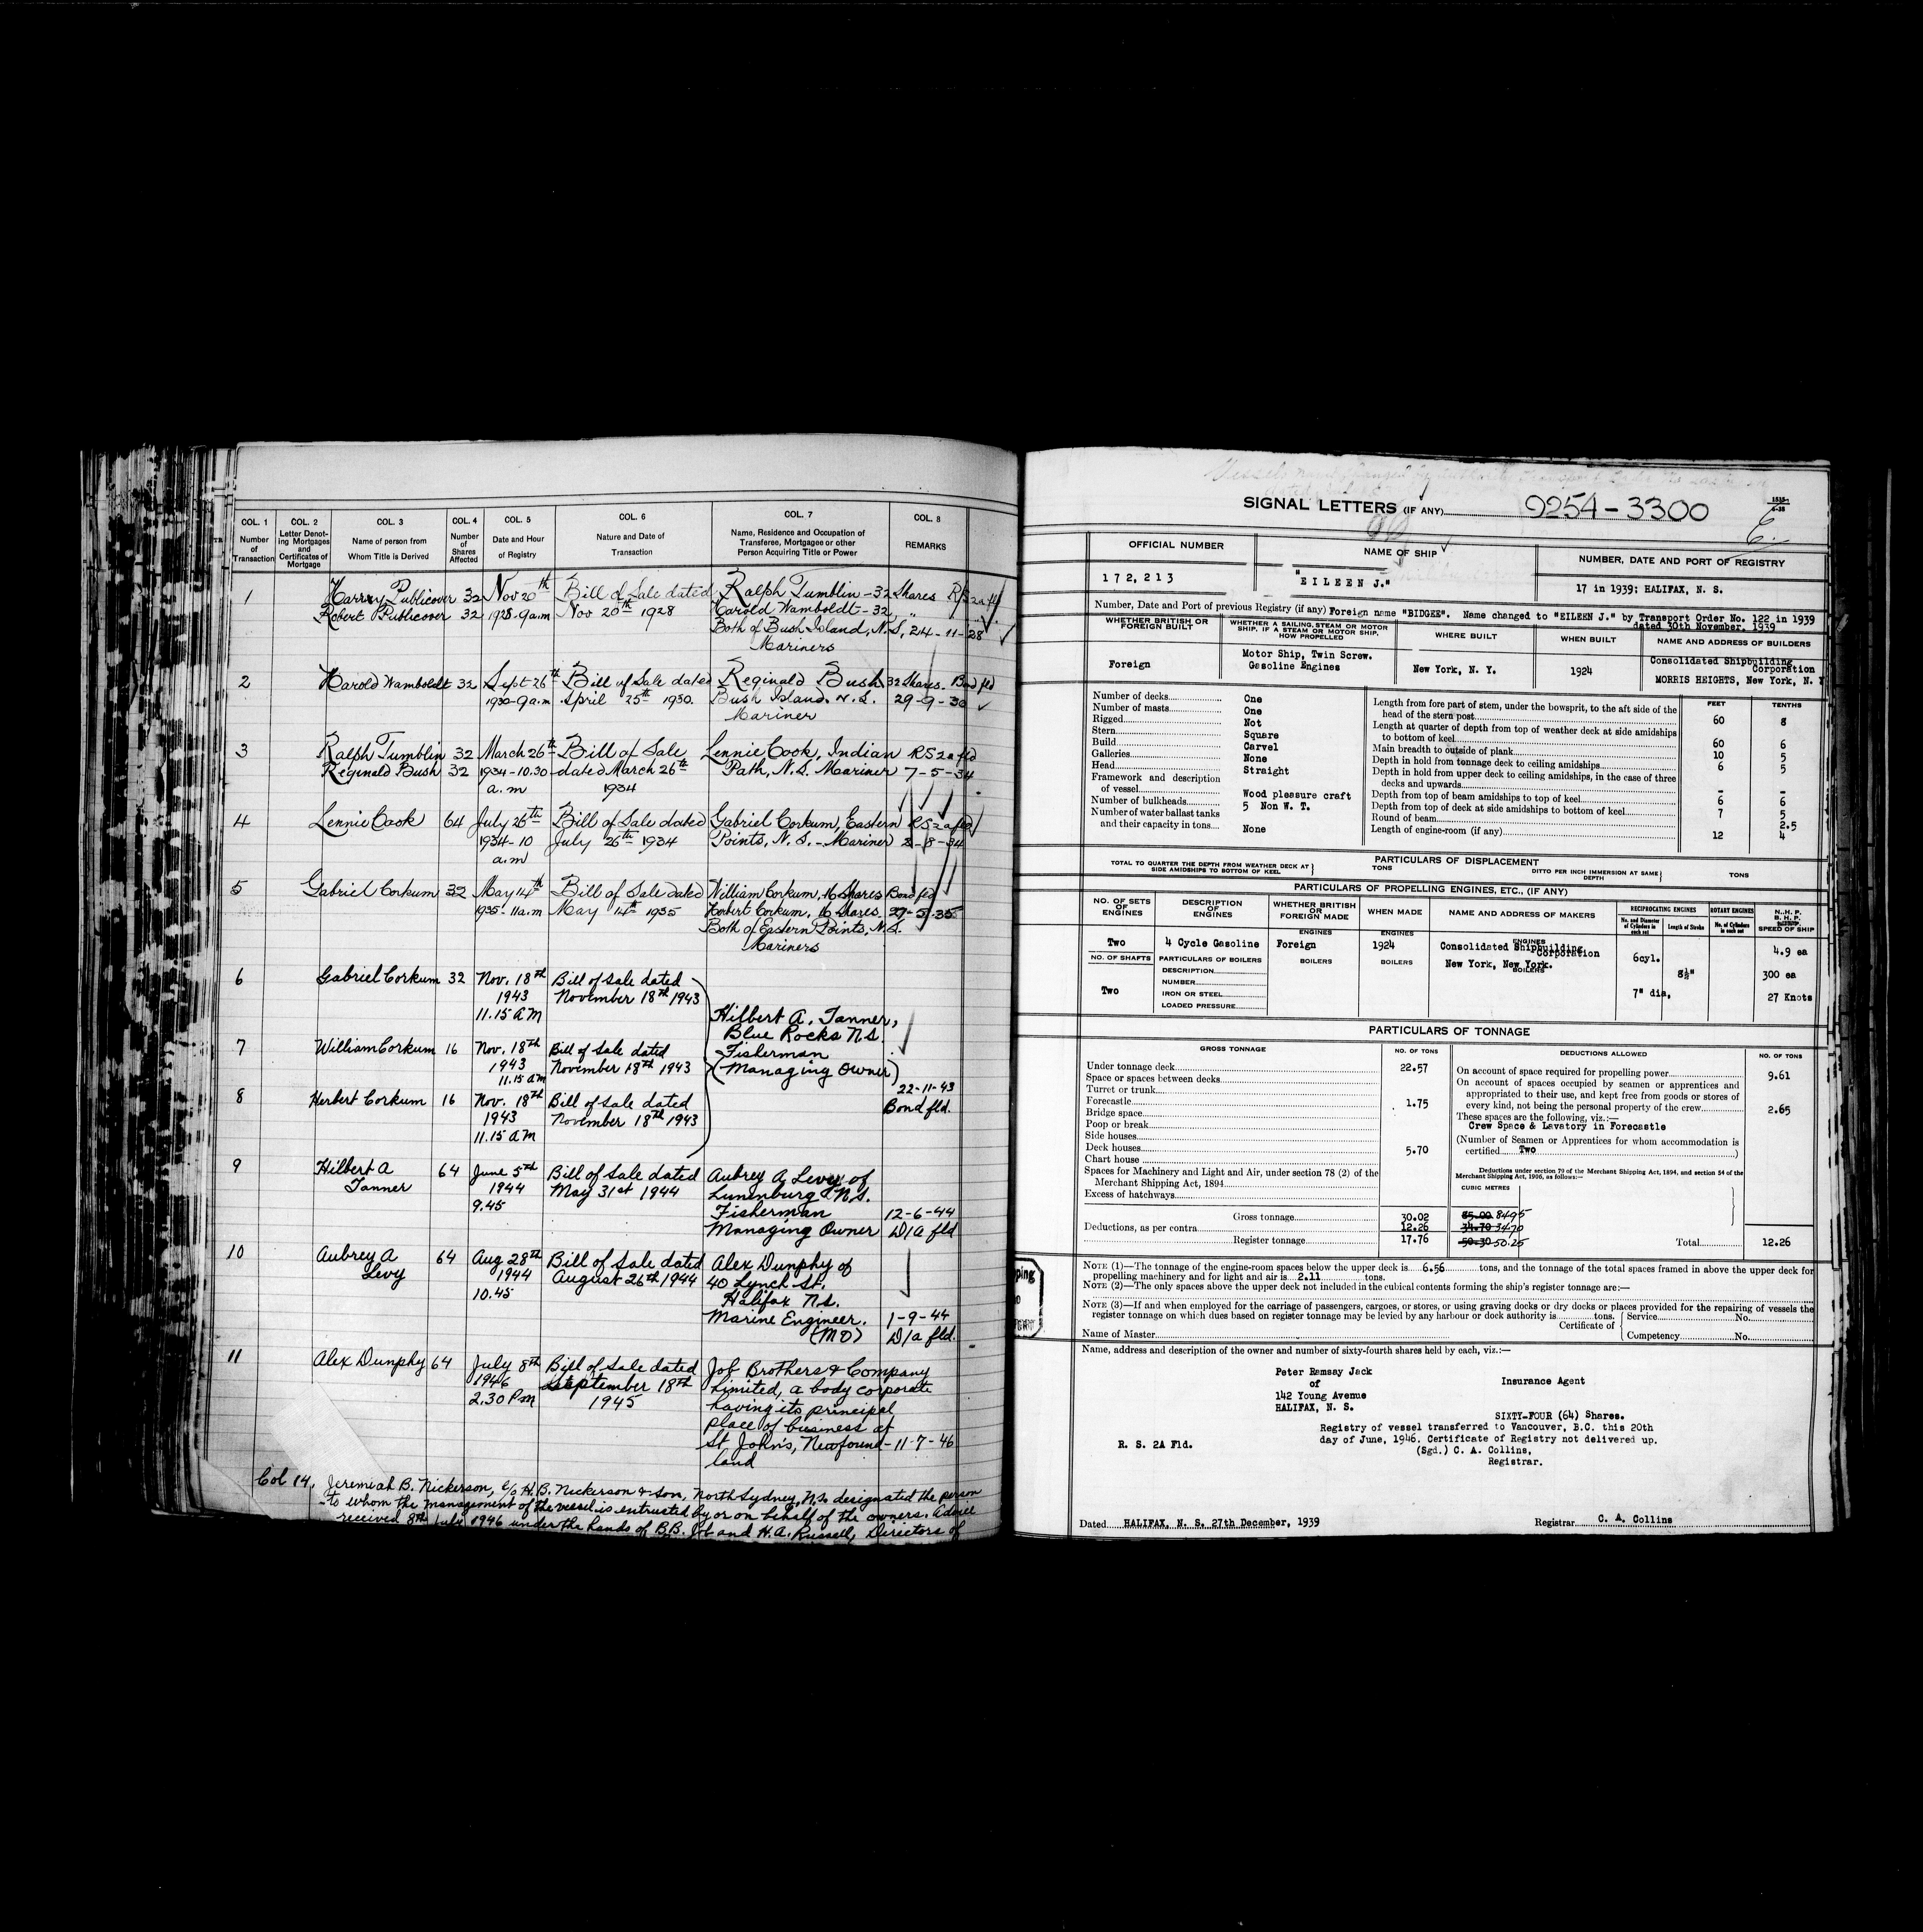 COL. 1 COL. 2 COL. 3 COL. 4 COL. 5 COL. 6 COL. 7 COL. 8
Number of Transaction
Letter Denoting Mortgages and Certificates of Mortgage
Name of person from Whom Title is Derived
Number of Shares Affected
Date and Hour of Registry
Nature and Date of Transaction
Name, Residence and Occupation of Transferee, Mortgagee or other Person Acquiring Title or Power
REMARKS
1 Harry Publicover 32 Nov 20th Bill of Sale dated Ralph Tumblin - 32 Shares RS 2a fld
Robert Publicover 32 1928-9am Nov 20th 1928 Harold Wamboldt - 32 "
Both of Bush Island, N.S, 24-11-28
Mariners
2 Harold Wamboldt 32 Sept 26th Bill of Sale dated Reginald Bush 32 Shares. Bond fld
1930-9am. April 25th 1930. Bush Island. N.S. 29-9-30
Mariner
3 Ralph Tumblin 32 March 26th Bill of Sale Lennie Cook, Indian RS 2a fld
Reginald Bush 32 1934-10.30 dated March 26th Path, N.S. Mariner 7-5-34
a.m 1934
4 Lennie Cook 64 July 26th Bill of Sale dated Gabriel Corkum, Eastern RS 2a fld
1934-10 July 26th 1934 Points, N.S. - Mariner 2-8-34
a.m
5 Gabriel Corkum 32 May 14th Bill of Sale dated William Corkum, 16 Shares Bond fld
1935-11a.m May 14th 1935 Herbert Corkum, 16 Shares 27-5-35
Both of Eastern Points, N.S.
Mariners
6 Gabriel Corkum 32 Nov. 18th Bill of Sale dated
1943 November 18th 1943
11.15 AM Hilbert A. Tanner,
Blue Rocks N.S.
7 William Corkum 16 Nov. 18th Bill of Sale dated Fisherman
1943 November 18th 1943 (Managing Owner)
11.15 AM 22-11-43
8 Herbert Corkum 16 Nov. 18th Bill of Sale dated Bond fld.
1943 November 18th 1943
11.15 AM
9 Hilbert A 64 June 5th Bill of Sale dated Aubrey A Levy of
Tanner 1944 May 31st 1944 Lunenburg N.S.
9.45 Fisherman 12-6-44
Managing Owner D/a fld
10 Aubrey A 64 Aug 28th Bill of Sale dated Alex Dunphy of
Levy 1944 August 26th 1944 40 Lynch St.
10.45 Halifax N.S.
Marine Engineer. 1-9-44
(MO) D/a fld.
11 Alex Dunphy 64 July 8th Bill of Sale dated Job Brothers & Company
1946 September 18th Limited, a body corporate
2.30 Pm 1945 having its principal
place of business at
St. John's, Newfound- 11-7-46
land
Col 14. Jeremiah B. Nickerson, c/o H.B. Nickerson & Son, North Sydney, N.S. designated the person
to whom the management of the vessel is entrusted by or on behalf of the owners. Advice
received 8th July 1946 under the hands of B.B. Job and H.A. Russell, Directors of
SIGNAL LETTERS (IF ANY) 9254-3300
OFFICIAL NUMBER NAME OF SHIP NUMBER, DATE AND PORT OF REGISTRY
172,213 "EILEEN J." 17 in 1939: HALIFAX, N. S.
Number, Date and Port of previous Registry (if any) Foreign name "BIDGEE". Name changed to "EILEEN J." by Transport Order No. 122 in 1939
dated 30th November, 1939
WHETHER BRITISH OR FOREIGN BUILT
WHETHER A SAILING, STEAM OR MOTOR SHIP, IF A STEAM OR MOTOR SHIP, HOW PROPELLED
WHERE BUILT WHEN BUILT NAME AND ADDRESS OF BUILDERS
Foreign
Motor Ship, Twin Screw.
Gasoline Engines
New York, N. Y. 1924
Consolidated Shipbuilding
Corporation
MORRIS HEIGHTS, New York, N. Y
Number of decks One
Number of masts One
Rigged Not
Stern Square
Build Carvel
Galleries None
Head Straight
Framework and description
of vessel Wood pleasure craft
Number of bulkheads 5 Non W. T.
Number of water ballast tanks
and their capacity in tons None
FEET TENTHS
Length from fore part of stem, under the bowsprit, to the aft side of the
head of the stern post 60 8
Length at quarter of depth from top of weather deck at side amidships
to bottom of keel 60 6
Main breadth to outside of plank 10 5
Depth in hold from tonnage deck to ceiling amidships 6 5
Depth in hold from upper deck to ceiling amidships, in the case of three
decks and upwards - -
Depth from top of beam amidships to top of keel 6 6
Depth from top of deck at side amidships to bottom of keel 7 5
Round of beam 2.5
Length of engine-room (if any) 12 4
PARTICULARS OF DISPLACEMENT
TOTAL TO QUARTER THE DEPTH FROM WEATHER DECK AT SIDE AMIDSHIPS TO BOTTOM OF KEEL TONS
DITTO PER INCH IMMERSION AT SAME DEPTH TONS
PARTICULARS OF PROPELLING ENGINES, ETC., (IF ANY)
NO. OF SETS OF ENGINES
DESCRIPTION OF ENGINES
WHETHER BRITISH OR FOREIGN MADE
WHEN MADE
NAME AND ADDRESS OF MAKERS
RECIPROCATING ENGINES
No. and Diameter of Cylinders in each set
Length of Stroke
ROTARY ENGINES
No. of Cylinders in each set
N.H.P.
B.H.P.
SPEED OF SHIP
ENGINES ENGINES ENGINES
Two 4 Cycle Gasoline Foreign 1924 Consolidated Shipbuilding
Corporation
New York, New York.
6cyl. 4.9 ea
NO. OF SHAFTS PARTICULARS OF BOILERS BOILERS BOILERS BOILERS
DESCRIPTION 8½" 300 ea
NUMBER
Two IRON OR STEEL 7" dia, 27 Knots
LOADED PRESSURE
PARTICULARS OF TONNAGE
GROSS TONNAGE NO. OF TONS DEDUCTIONS ALLOWED NO. OF TONS
Under tonnage deck 22.57
Space or spaces between decks
Turret or trunk
Forecastle 1.75
Bridge space
Poop or break
Side houses
Deck houses 5.70
Chart house
Spaces for Machinery and Light and Air, under section 78 (2) of the
Merchant Shipping Act, 1894
Excess of hatchways
Gross tonnage 30.02
Deductions, as per contra 12.26
Register tonnage 17.76
On account of space required for propelling power 9.61
On account of spaces occupied by seamen or apprentices and
appropriated to their use, and kept free from goods or stores of
every kind, not being the personal property of the crew 2.65
These spaces are the following, viz.:—
Crew Space & Lavatory in Forecastle
(Number of Seamen or Apprentices for whom accommodation is
certified Two )
Deductions under section 79 of the Merchant Shipping Act, 1894, and section 54 of the
Merchant Shipping Act, 1906, as follows:—
CUBIC METRES
85.00 84.95
34.70 34.70
50.30 50.25
Total 12.26
NOTE (1)—The tonnage of the engine-room spaces below the upper deck is 6.56 tons, and the tonnage of the total spaces framed in above the upper deck for
propelling machinery and for light and air is 2.11 tons.
NOTE (2)—The only spaces above the upper deck not included in the cubical contents forming the ship's register tonnage are:—
NOTE (3)—If and when employed for the carriage of passengers, cargoes, or stores, or using graving docks or dry docks or places provided for the repairing of vessels the
register tonnage on which dues based on register tonnage may be levied by any harbour or dock authority is tons.
Certificate of Service No.
Competency No.
Name of Master
Name, address and description of the owner and number of sixty-fourth shares held by each, viz.:—
Peter Ramsay Jack
of Insurance Agent
142 Young Avenue
HALIFAX, N. S.
SIXTY-FOUR (64) Shares.
Registry of vessel transferred to Vancouver, B.C. this 20th
day of June, 1946. Certificate of Registry not delivered up.
R. S. 2A Fld.
(Sgd.) C. A. Collins,
Registrar.
Dated HALIFAX, N. S. 27th December, 1939 Registrar C. A. Collins